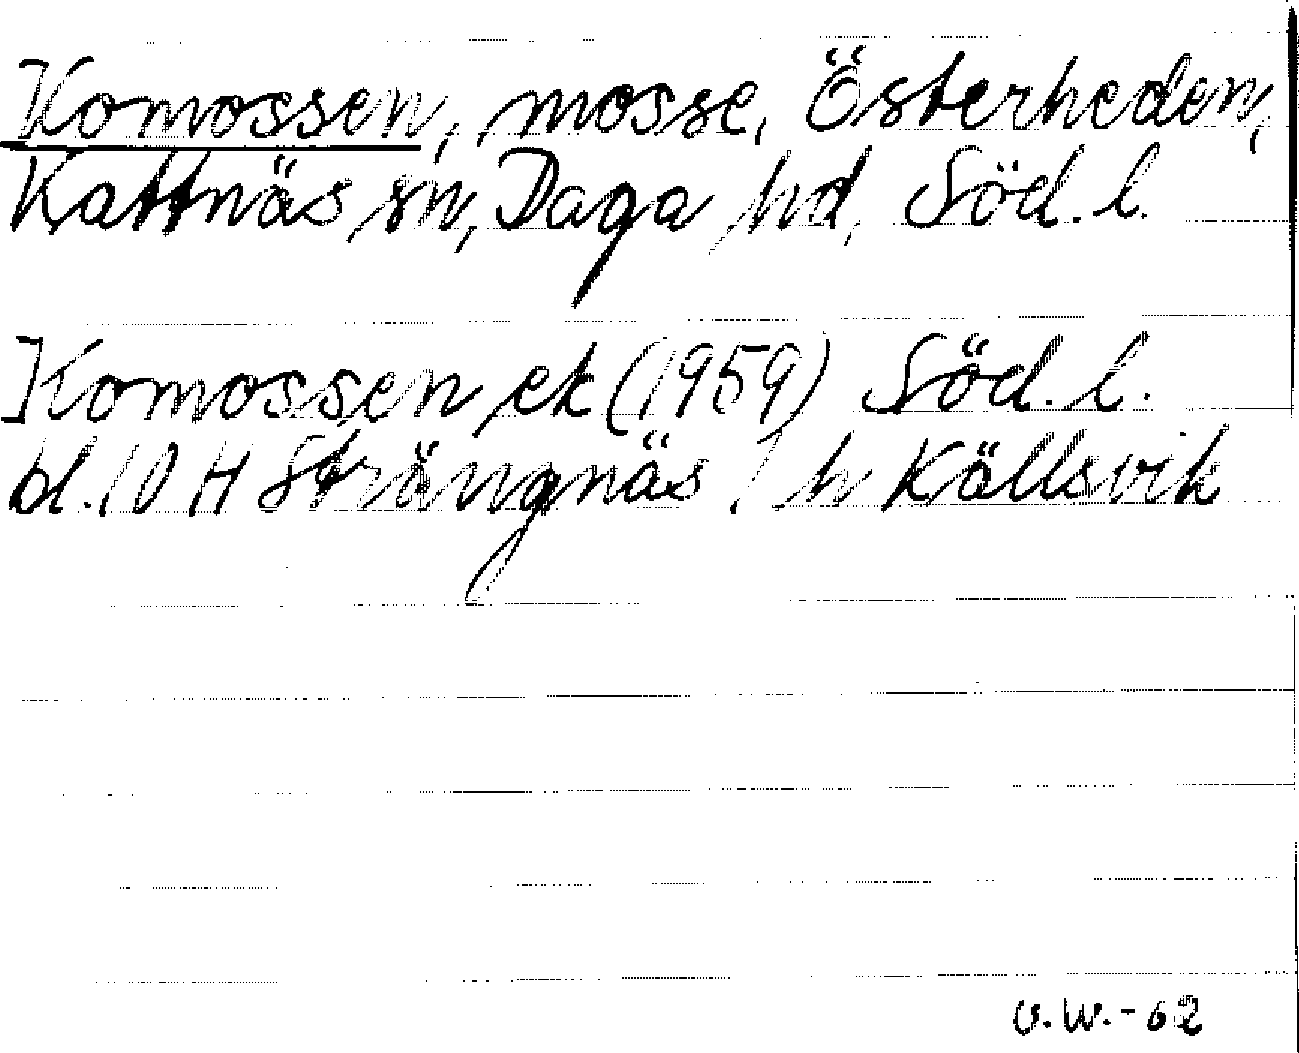 Komossen, mosse, Österheden,
Kattnäs sn, Daga hd, Söd. l.
Komossen ek (1959) Söd. l.
bl. 10 H Strängnäs 1 h Källsvik
U.W.-62